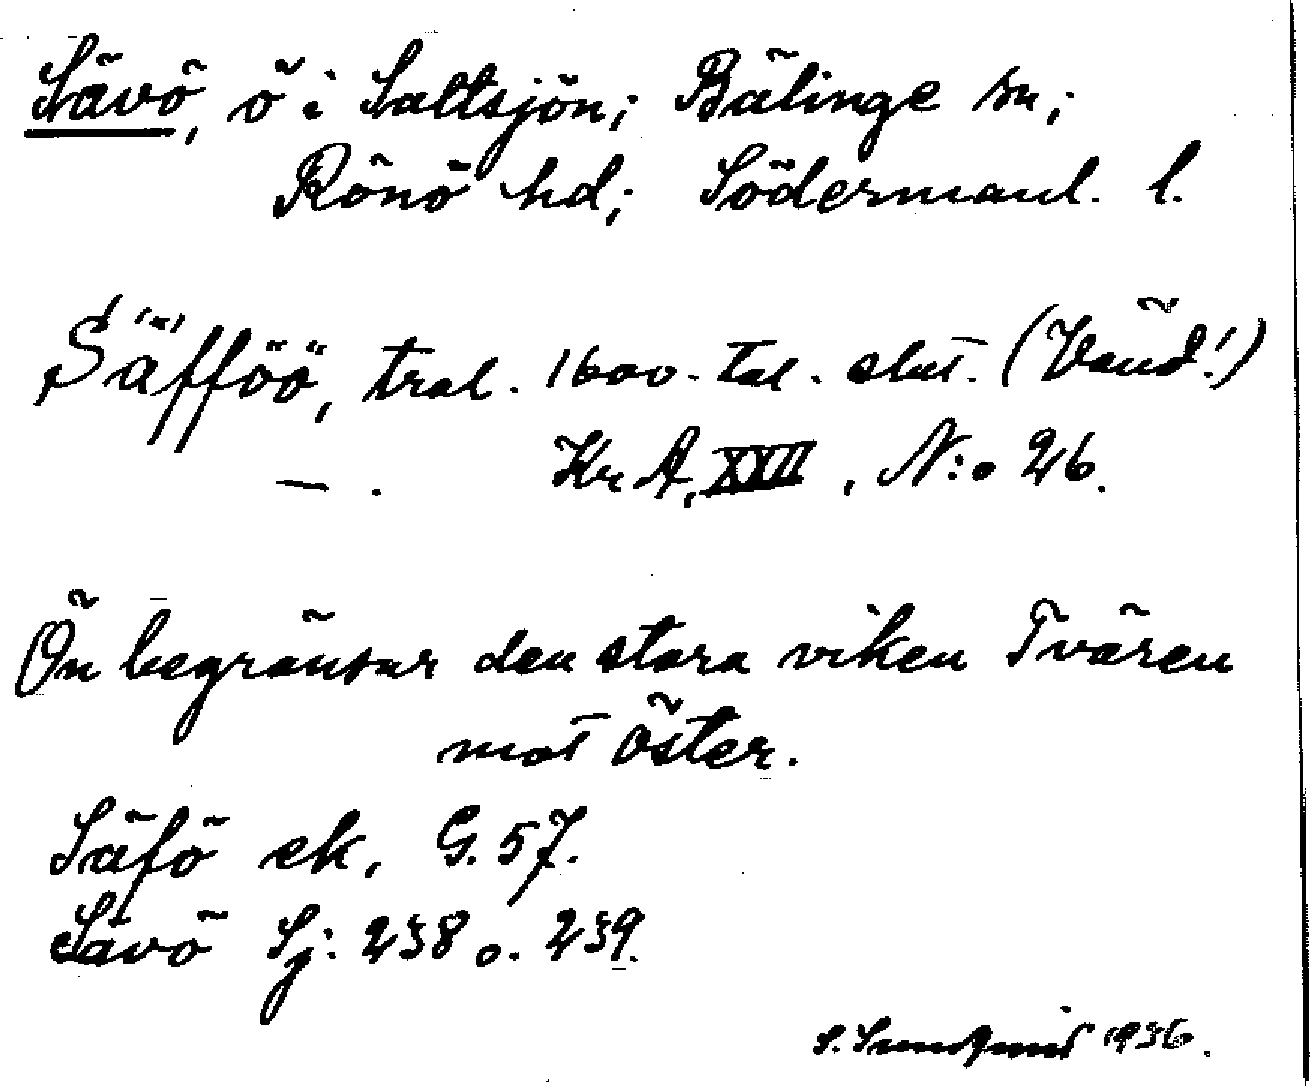 Sävö, ö i Saltsjön; Bälinge sn;
Rönö hd; Södermanl. l.
Säfföö, tral. 1600-tal. slut. (Vänd!)
— . Kr A, XXII, N:o 26.
Ön begränsar den stora viken Tvären
mot öster.
Säfö ek. G. 57.
Sävö Sj: 238 o. 239.
S. Sundqvist 1936.